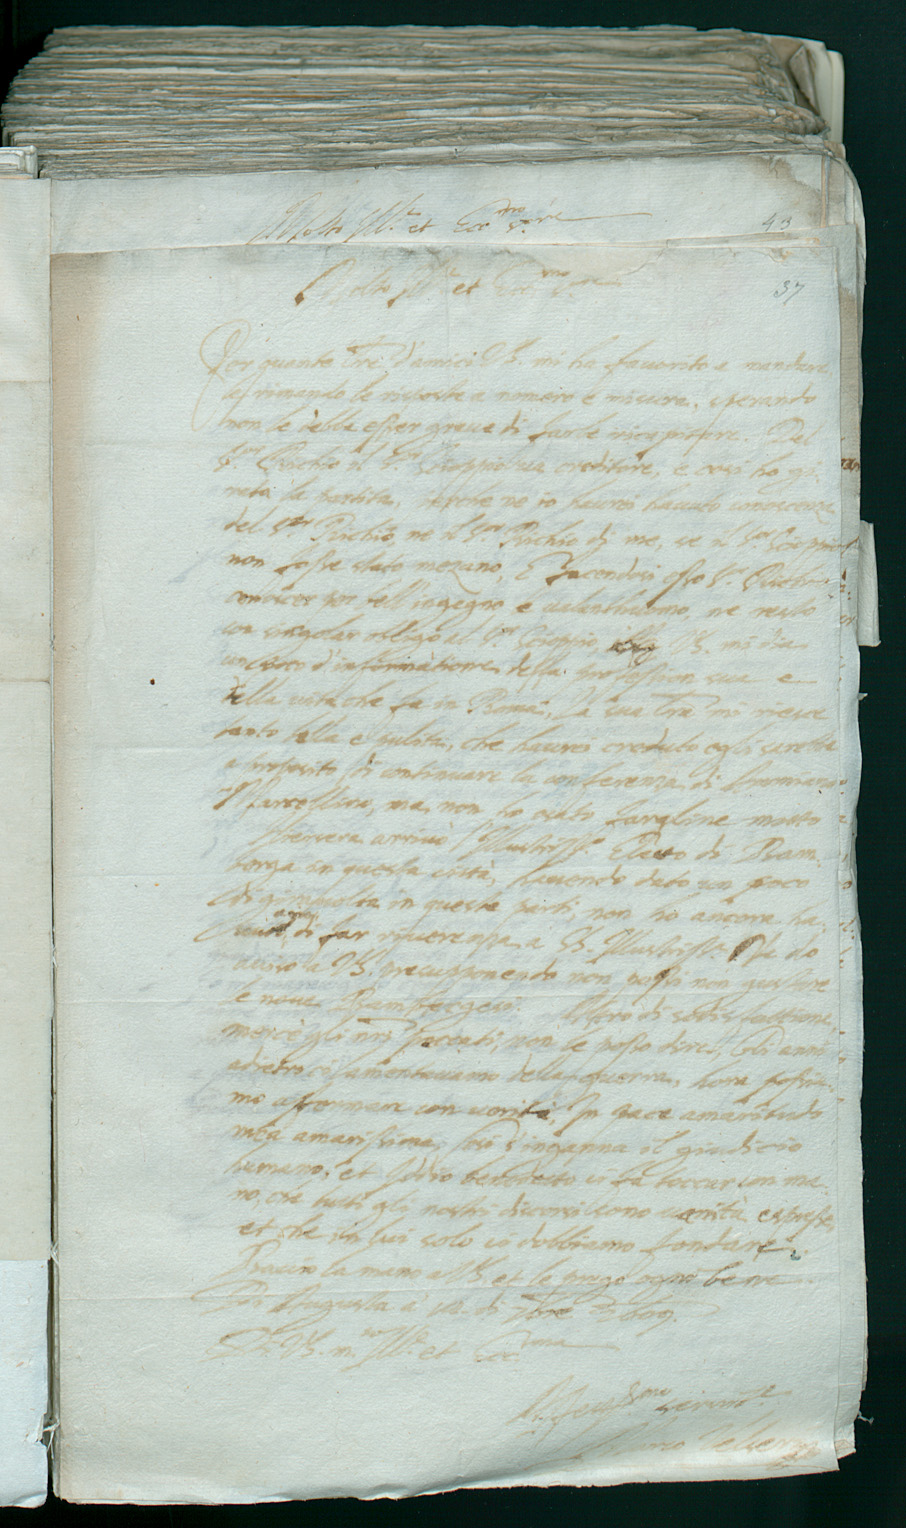 Molto Ill.re et Ecc.mo S.re
43
Molto Ill.re et Ecc.mo S.re
37
Per quante lre d'amici V.S. mi ha favorito a mandare
le rimando le risposte a numero e misura, sperando
non le debba esser grave di farle ricapitare. Del
S.or Richio il S.or Scioppio sua creditore, e così ho gi
rata la partita, perche ne io haurei hauuto conoscenza
del S.or Richio, ne il S.or Richio di me, se il S.or Scioppio
non fosse stato mezano, E facendosi esso S.or Richio
conoscer per bell'ingegno e ualenthuomo, ne resto
con singolar obligo al S.or Scioppio, V.S. mi dia
un poco d'informatione della profession sua e
della uita che fa in Roma, La sua lra mi riesce
tanto bella e pulita, che haurei creduto egli sarebbe
a proposito di continuare la conferenza di Ammiano
Marcellino, ma non ho osato fargline motto
Hiersera arriuò l'Illustriss.o Eletto di Bam
berga in questa città, hauendo dato un poco
di girauolta in queste parti, non ho ancora ha
uuto di far riuerenza a S.S. Illustriss.a Ne do
auiso a V.S. presupponendo non possi non gustare
le noue Bambergesi. Altro di sodisfattione,
mercè gli nri peccati, non le posso dire, Gli anni
adietro ci lamentauamo della guerra, hora possia
mo affermare con uerità, In pace amaritudo
mea amarissima, così s'inganna il giudicio
humano, et Iddio benedetto ci fa toccar con ma
no, che tutti gli nostri discorsi sono uanità espresse,
et che in lui solo ci dobbiamo fondare.
Bacio la mano a V.S. et le prego ogni bene
Di Augusta a di
Di V.S. m.to Ill.re et Ecc.ma
Aff.mo seruit.re
Marco Velseri